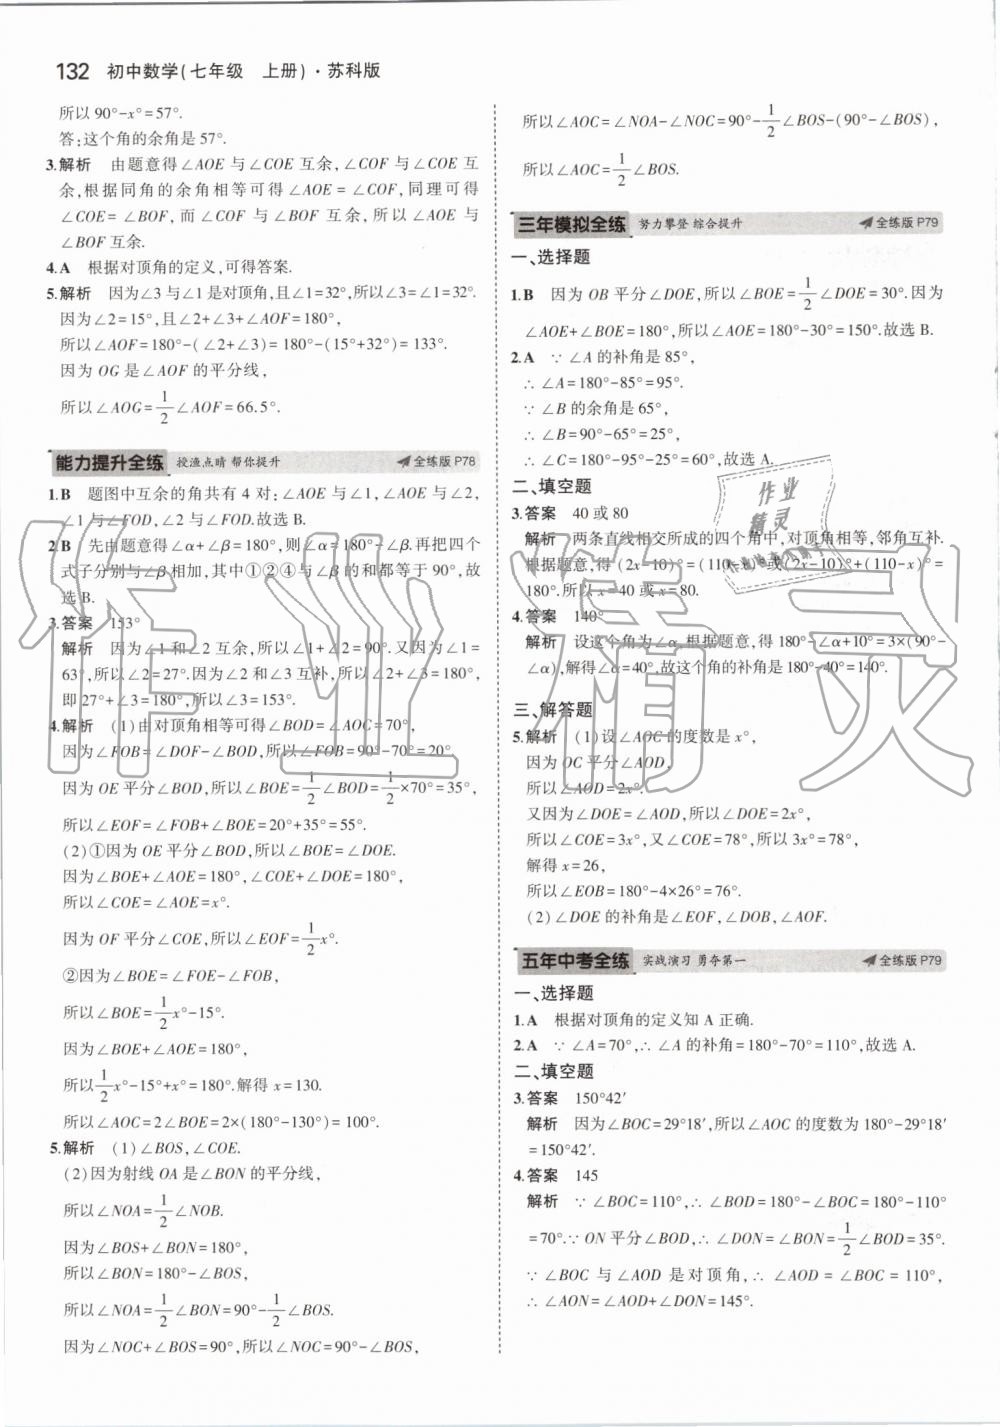 132 初中数学(七年级 上册)·苏科版
所以90°-x°=57°.
答:这个角的余角是57°.
3.解析 由题意得∠AOE与∠COE互余,∠COF与∠COE互
余,根据同角的余角相等可得∠AOE=∠COF,同理可得
∠COE=∠BOF,而∠COF与∠BOF互余,所以∠AOE与
∠BOF互余.
4.A 根据对顶角的定义,可得答案.
5.解析 因为∠3与∠1是对顶角,且∠1=32°,所以∠3=∠1=32°.
因为∠2=15°,且∠2+∠3+∠AOF=180°,
所以∠AOF=180°-(∠2+∠3)=180°-(15°+32°)=133°.
因为OG是∠AOF的平分线,
所以∠AOG=1/2∠AOF=66.5°.
能力提升全练 授渔点睛 帮你提升 全练版P78
1.B 题图中互余的角共有4对:∠AOE与∠1,∠AOE与∠2,
∠1与∠FOD,∠2与∠FOD.故选B.
2.B 先由题意得∠α+∠β=180°,则∠α=180°-∠β.再把四个
式子分别与∠β相加,其中①②④与∠β的和都等于90°,故
选B.
3.答案 153°
解析 因为∠1和∠2互余,所以∠1+∠2=90°.又因为∠1=
63°,所以∠2=27°.因为∠2和∠3互补,所以∠2+∠3=180°,
即27°+∠3=180°,所以∠3=153°.
4.解析 (1)由对顶角相等可得∠BOD=∠AOC=70°,
因为∠FOB=∠DOF-∠BOD,所以∠FOB=90°-70°=20°.
因为OE平分∠BOD,所以∠BOE=1/2∠BOD=1/2×70°=35°,
所以∠EOF=∠FOB+∠BOE=20°+35°=55°.
(2)①因为OE平分∠BOD,所以∠BOE=∠DOE.
因为∠BOE+∠AOE=180°,∠COE+∠DOE=180°,
所以∠COE=∠AOE=x°.
因为OF平分∠COE,所以∠EOF=1/2x°.
②因为∠BOE=∠FOE-∠FOB,
所以∠BOE=1/2x°-15°.
因为∠BOE+∠AOE=180°,
所以1/2x°-15°+x°=180°.解得x=130.
所以∠AOC=2∠BOE=2×(180°-130°)=100°.
5.解析 (1)∠BOS,∠COE.
(2)因为射线OA是∠BON的平分线,
所以∠NOA=1/2∠NOB.
因为∠BOS+∠BON=180°,
所以∠BON=180°-∠BOS,
所以∠NOA=1/2∠BON=90°-1/2∠BOS.
因为∠NOC+∠BOS=90°,所以∠NOC=90°-∠BOS,
所以∠AOC=∠NOA-∠NOC=90°-1/2∠BOS-(90°-∠BOS),
所以∠AOC=1/2∠BOS.
三年模拟全练 努力攀登 综合提升 全练版P79
一、选择题
1.B 因为OB平分∠DOE,所以∠BOE=1/2∠DOE=30°.因为
∠AOE+∠BOE=180°,所以∠AOE=180°-30°=150°.故选B.
2.A ∵∠A的补角是85°,
∴∠A=180°-85°=95°.
∵∠B的余角是65°,
∴∠B=90°-65°=25°,
∴∠C=180°-95°-25°=60°,故选A.
二、填空题
3.答案 40或80
解析 两条直线相交所成的四个角中,对顶角相等,邻角互补.
根据题意,得(2x-10)°=(110-x)°或(2x-10)°+(110-x)°=
180°.所以x=40或x=80.
4.答案 140°
解析 设这个角为∠α,根据题意,得180°-∠α+10°=3×(90°-
∠α),解得∠α=40°,故这个角的补角是180°-40°=140°.
三、解答题
5.解析 (1)设∠AOC的度数是x°,
因为OC平分∠AOD,
所以∠AOD=2x°.
又因为∠DOE=∠AOD,所以∠DOE=2x°,
所以∠COE=3x°,又∠COE=78°,所以3x°=78°,
解得x=26,
所以∠EOB=180°-4×26°=76°.
(2)∠DOE的补角是∠EOF,∠DOB,∠AOF.
五年中考全练 实战演习 勇夺第一 全练版P79
一、选择题
1.A 根据对顶角的定义知A正确.
2.A ∵∠A=70°,∴∠A的补角=180°-70°=110°,故选A.
二、填空题
3.答案 150°42′
解析 因为∠BOC=29°18′,所以∠AOC的度数为180°-29°18′
=150°42′.
4.答案 145
解析 ∵∠BOC=110°,∴∠BOD=180°-∠BOC=180°-110°
=70°.∵ON平分∠BOD,∴∠DON=∠BON=1/2∠BOD=35°.
∵∠BOC与∠AOD是对顶角,∴∠AOD=∠BOC=110°,
∴∠AON=∠AOD+∠DON=145°.
作业精灵
作业
精灵